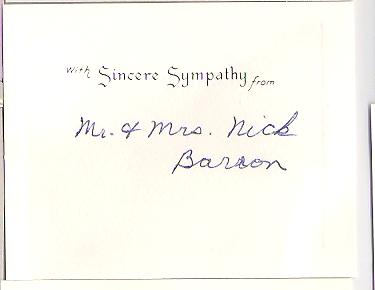 With Sincere Sympathy from
Mr. & Mrs. Nick
Barson